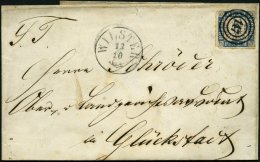 T. T.
WILSTER
12
10
Herrn Schröder
Ober- u Landgerichtsadvocat
in Glückstadt